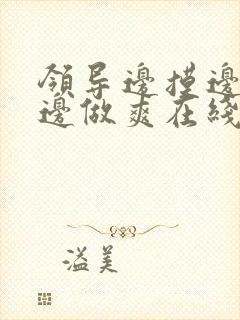 領导邊摸邊
邊做爽在綫
溢美